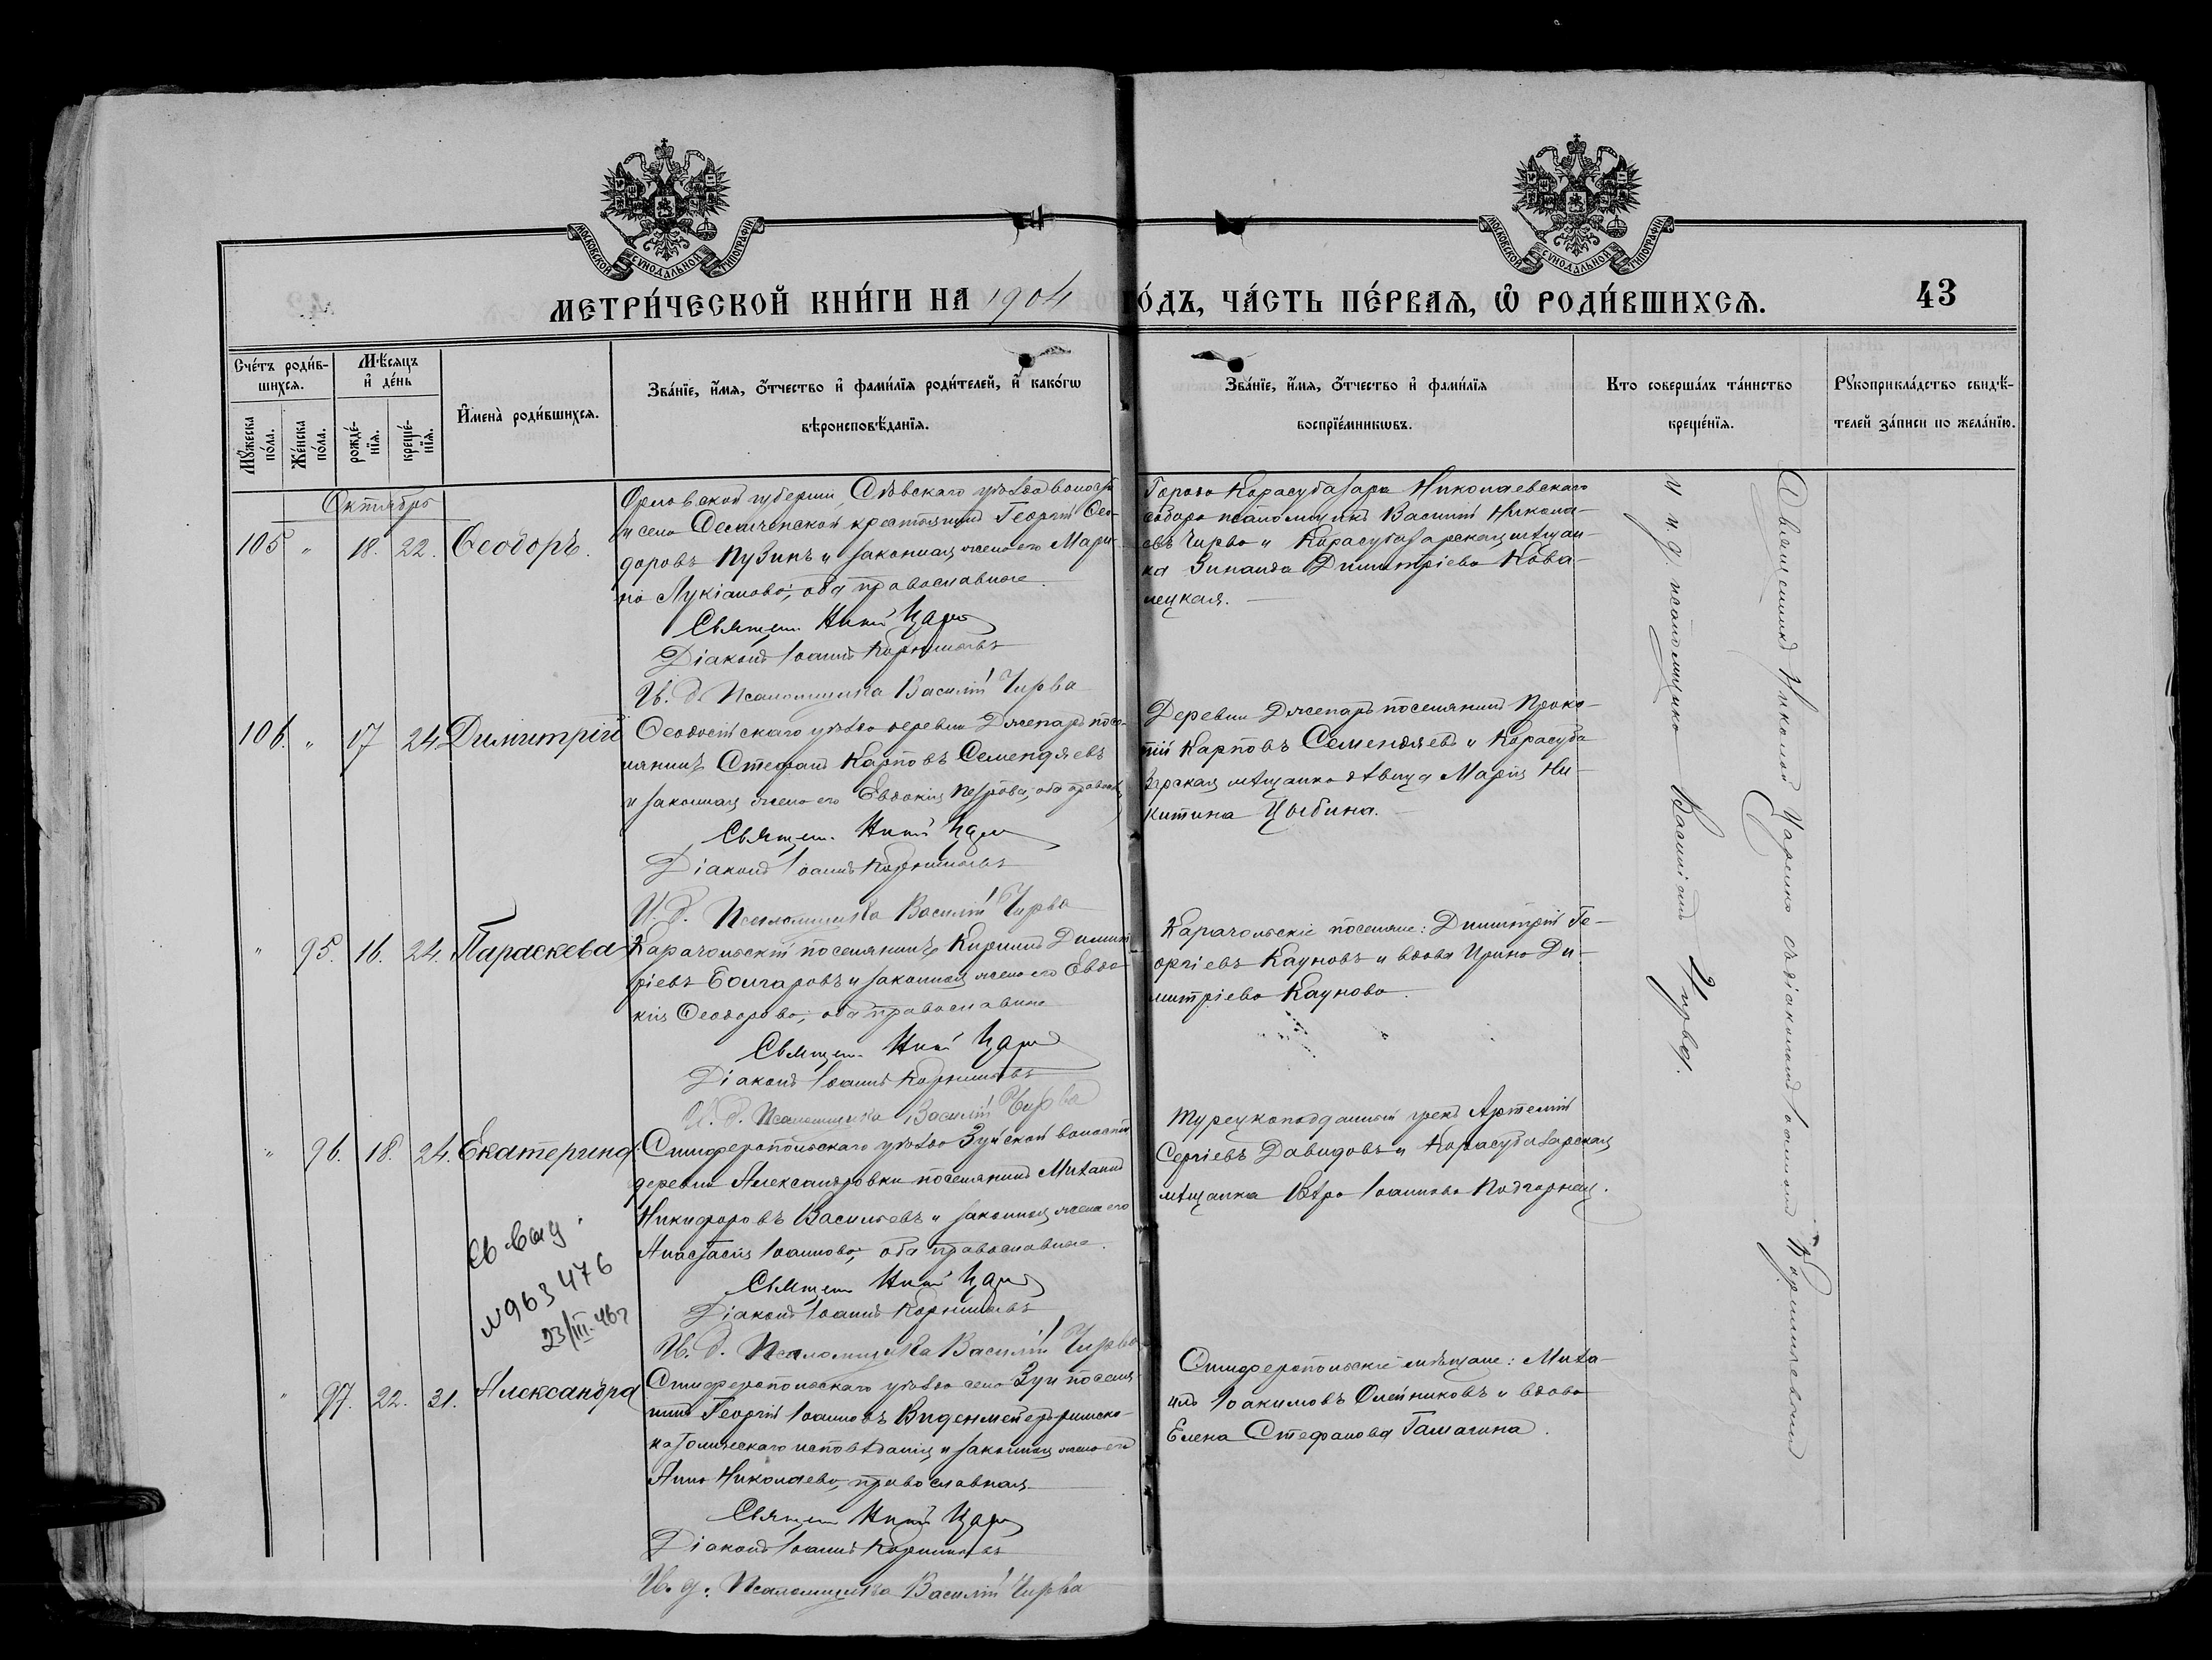 МОСКОВСКОЙ СѴНОДАЛЬНОЙ ТИПОГРАФІИ
МОСКОВСКОЙ СѴНОДАЛЬНОЙ ТИПОГРАФІИ
МЕТРИ́ЧЕСКОЙ КНИ́ГИ НА 1904 ГО́ДЪ, ЧА́СТЬ ПЕ́РВАЯ, Ѽ РОДИ́ВШИХСЯ.
43
Сче́тъ роди́в-
шихся.
Мѣ́сяцъ
и҆ де́нь
Мꙋ́жеска по́ла.
Же́нска по́ла.
рожде́-
нїя.
креще́-
нїя.
И҆мена̀ роди́вшихся.
Зва́нїе, и҆́мя, ѻ҆́тчество и҆ фами́лїя роди́телей, и҆ како́гѡ
вѣроисповѣ́данїя.
Зва́нїе, и҆́мя, ѻ҆́тчество и҆ фами́лїя
воспрїе́мникѡвъ.
Кто соверша́лъ та́инство
креще́нїя.
Рꙋкоприкла́дство свидѣ́-
телей за́писи по жела́нїю.
Октябрь
105 " 18. 22. Ѳеодоръ.
Орловской губерніи, Сѣвскаго уѣзда волости
и села Селиченской крестьянинъ Георгій Ѳео-
доровъ Пузинъ и законная жена его Мари-
на Лукіанова, оба православные.
Священ. Ник. Царе
Діаконъ Іоаннъ Корниліевъ
И. д. Псаломщика Василій Чирва
Города Карасубазара Николаевскаго
собора псаломщикъ Василій Никола-
евъ Чирва и Карасубазарская мѣщан-
ка Зинаида Димитріева Кова-
лецкая.
106. " 17 24 Димитрій
Ѳеодосійскаго уѣзда деревни Джепаръ посе-
лянинъ Стефанъ Карповъ Семендяевъ
и законная жена его Евдокія Петрова, оба правосл.
Священ. Ник. Царе
Діаконъ Іоаннъ Корниліевъ
И. д. Псаломщика Василій Чирва
Деревни Джепаръ поселянинъ Проко-
пій Карповъ Семендяевъ и Карасуба
зарская мѣщанка дѣвица Марія Ни-
китина Цыбина.
" 95. 16. 24. Параскева
Карачольскій поселянинъ Кириллъ Димит
ріевъ Болгаровъ и законная жена его Евдо-
кія Ѳеодорова, оба православные
Священ. Ник. Царе
Діаконъ Іоаннъ Корниліевъ
И. д. Псаломщика Василій Чирва
Карачольскіе поселяне: Димитрій Ге-
оргіевъ Кауновъ и вдова Ирина Ди-
митріева Каунова.
" 96. 18. 24. Екатерина
Симферопольскаго уѣзда Зуйской волости
деревни Александровки поселянинъ Михаилъ
Никифоровъ Васильевъ и законная жена его
Анастасія Іоаннова, оба православные.
Священ. Ник. Царе
Діаконъ Іоаннъ Корниліевъ
И. д. Псаломщика Василій Чирва
Турецкоподданный грекъ Артемій
Сергіевъ Давидовъ и Карасубазарская
мѣщанка Вѣра Іоаннова Подгорная.
Св выд.
№963476
23/III-46г
" 97. 22. 31. Александра
Симферопольскаго уѣзда села Зуи поселя-
нинъ Георгій Іоанновъ Виденмейеръ римско-
католическаго исповѣданія и законная жена его
Анна Николаева, православная
Священ. Ник. Царе
Діаконъ Іоаннъ Корниліевъ
И. д. Псаломщика Василій Чирва
Симферопольскіе мѣщане: Миха-
илъ Іоакимовъ Олейниковъ и вдова
Елена Стефанова Гамагина.
Священникъ Николай Царенко съ діакономъ Іоанномъ Корниліевымъ
и и. д. псаломщика Василіемъ Чирвой.